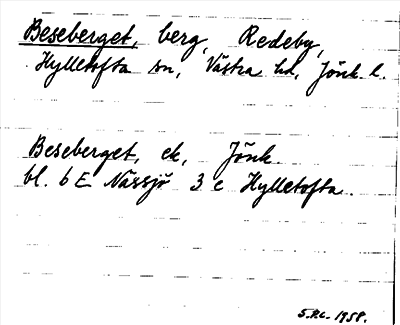 Beseberget, berg, Redeby,
Hylletofta sn, Västra hd, Jönk. l.
Beseberget, ek, Jönk.
bl. 6 E Nässjö 3 e Hylletofta.
1958.